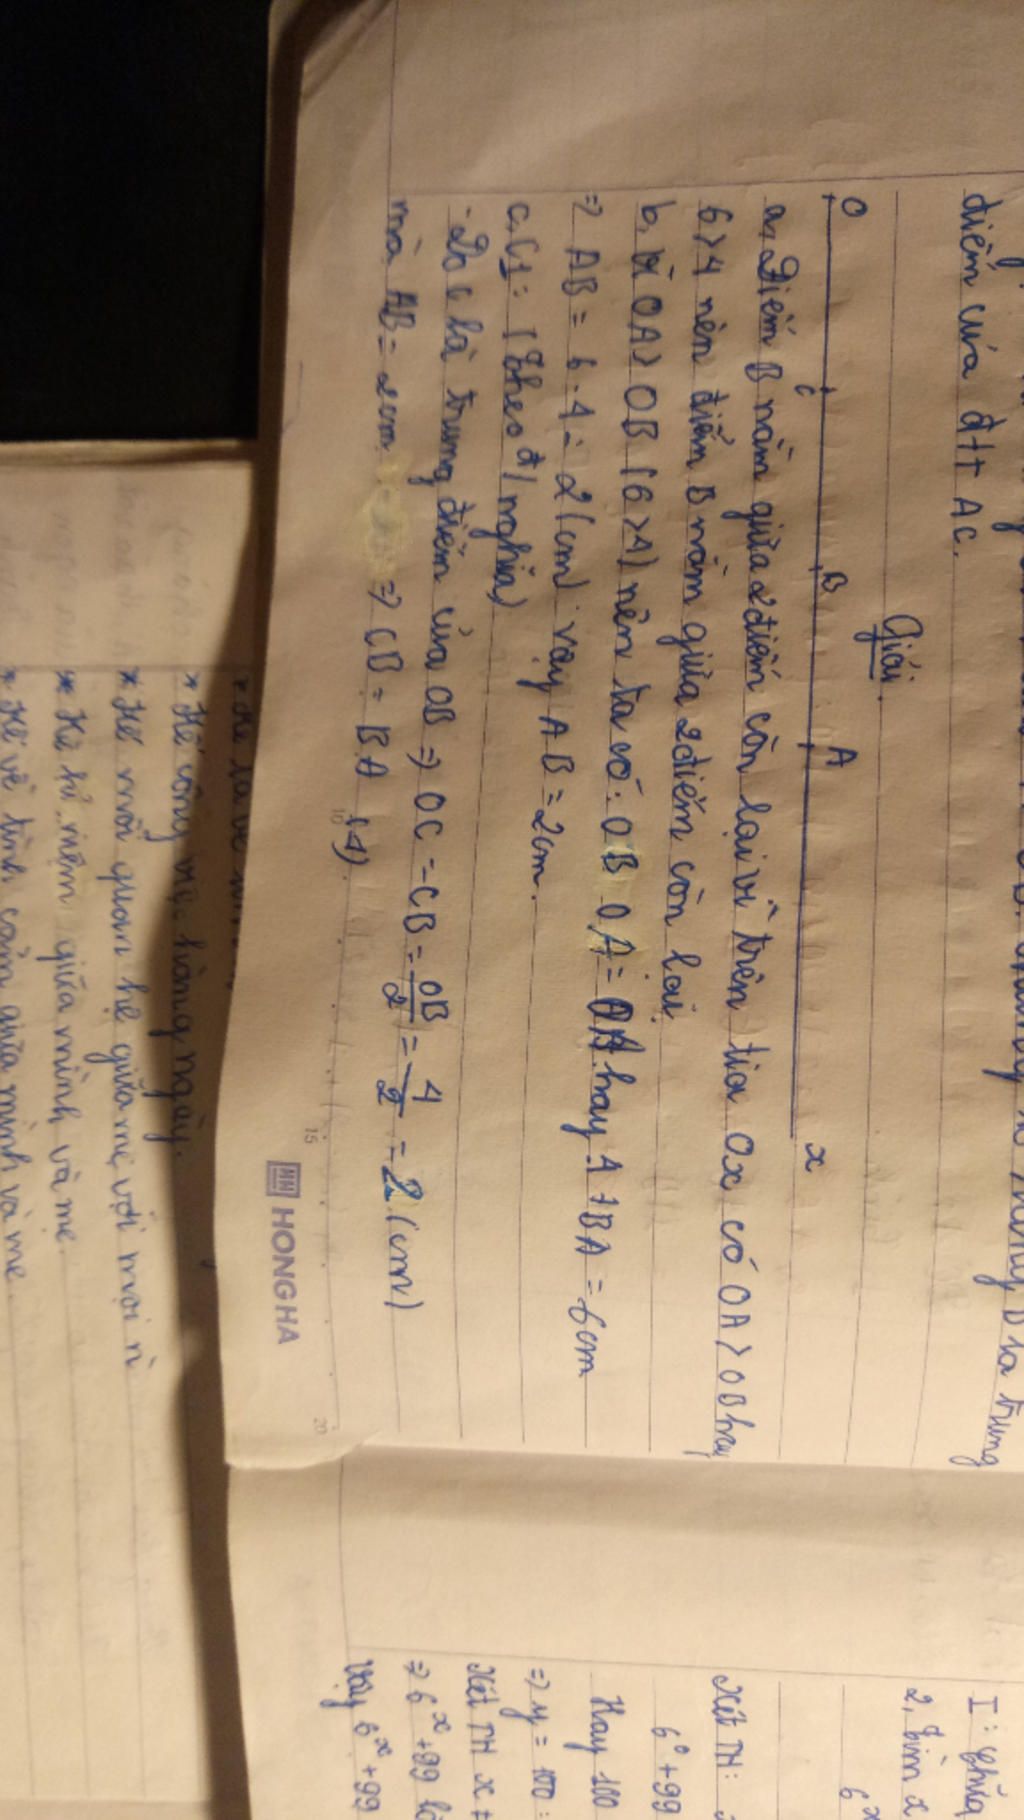 điểm của đtt AC.
trung
Giải.
O C B A x
a, Điểm B nằm giữa 2 điểm còn lại vì trên tia Ox có OA > OB hay
6 > 4 nên điểm B nằm giữa 2 điểm còn lại
b, Vì OA > OB (6 > 4) nên ta có: OB OA = OA hay 4 + BA = 6cm
=> AB = 6 - 4 = 2 (cm) vậy AB = 2cm.
c, C1: (theo đ/ nghĩa)
- Do C là trung điểm của OB => OC = CB = OB/2 = 4/2 = 2 (cm)
mà AB = 2cm => CB = BA (1).
10 15 20
HONG HA
* Kể công việc hàng ngày.
* Kể mối quan hệ giữa mẹ với mọi n
* Kể kỉ niệm giữa mình và mẹ
* Kể về tình cảm giữa mình và mẹ
I:
2, Tìm x
6^x
Xét TH:
6^0 + 99
Hay 100
=> y = 100 :
Xét TH x ≠
=> 6^x + 99 là
Vậy 6^x + 99